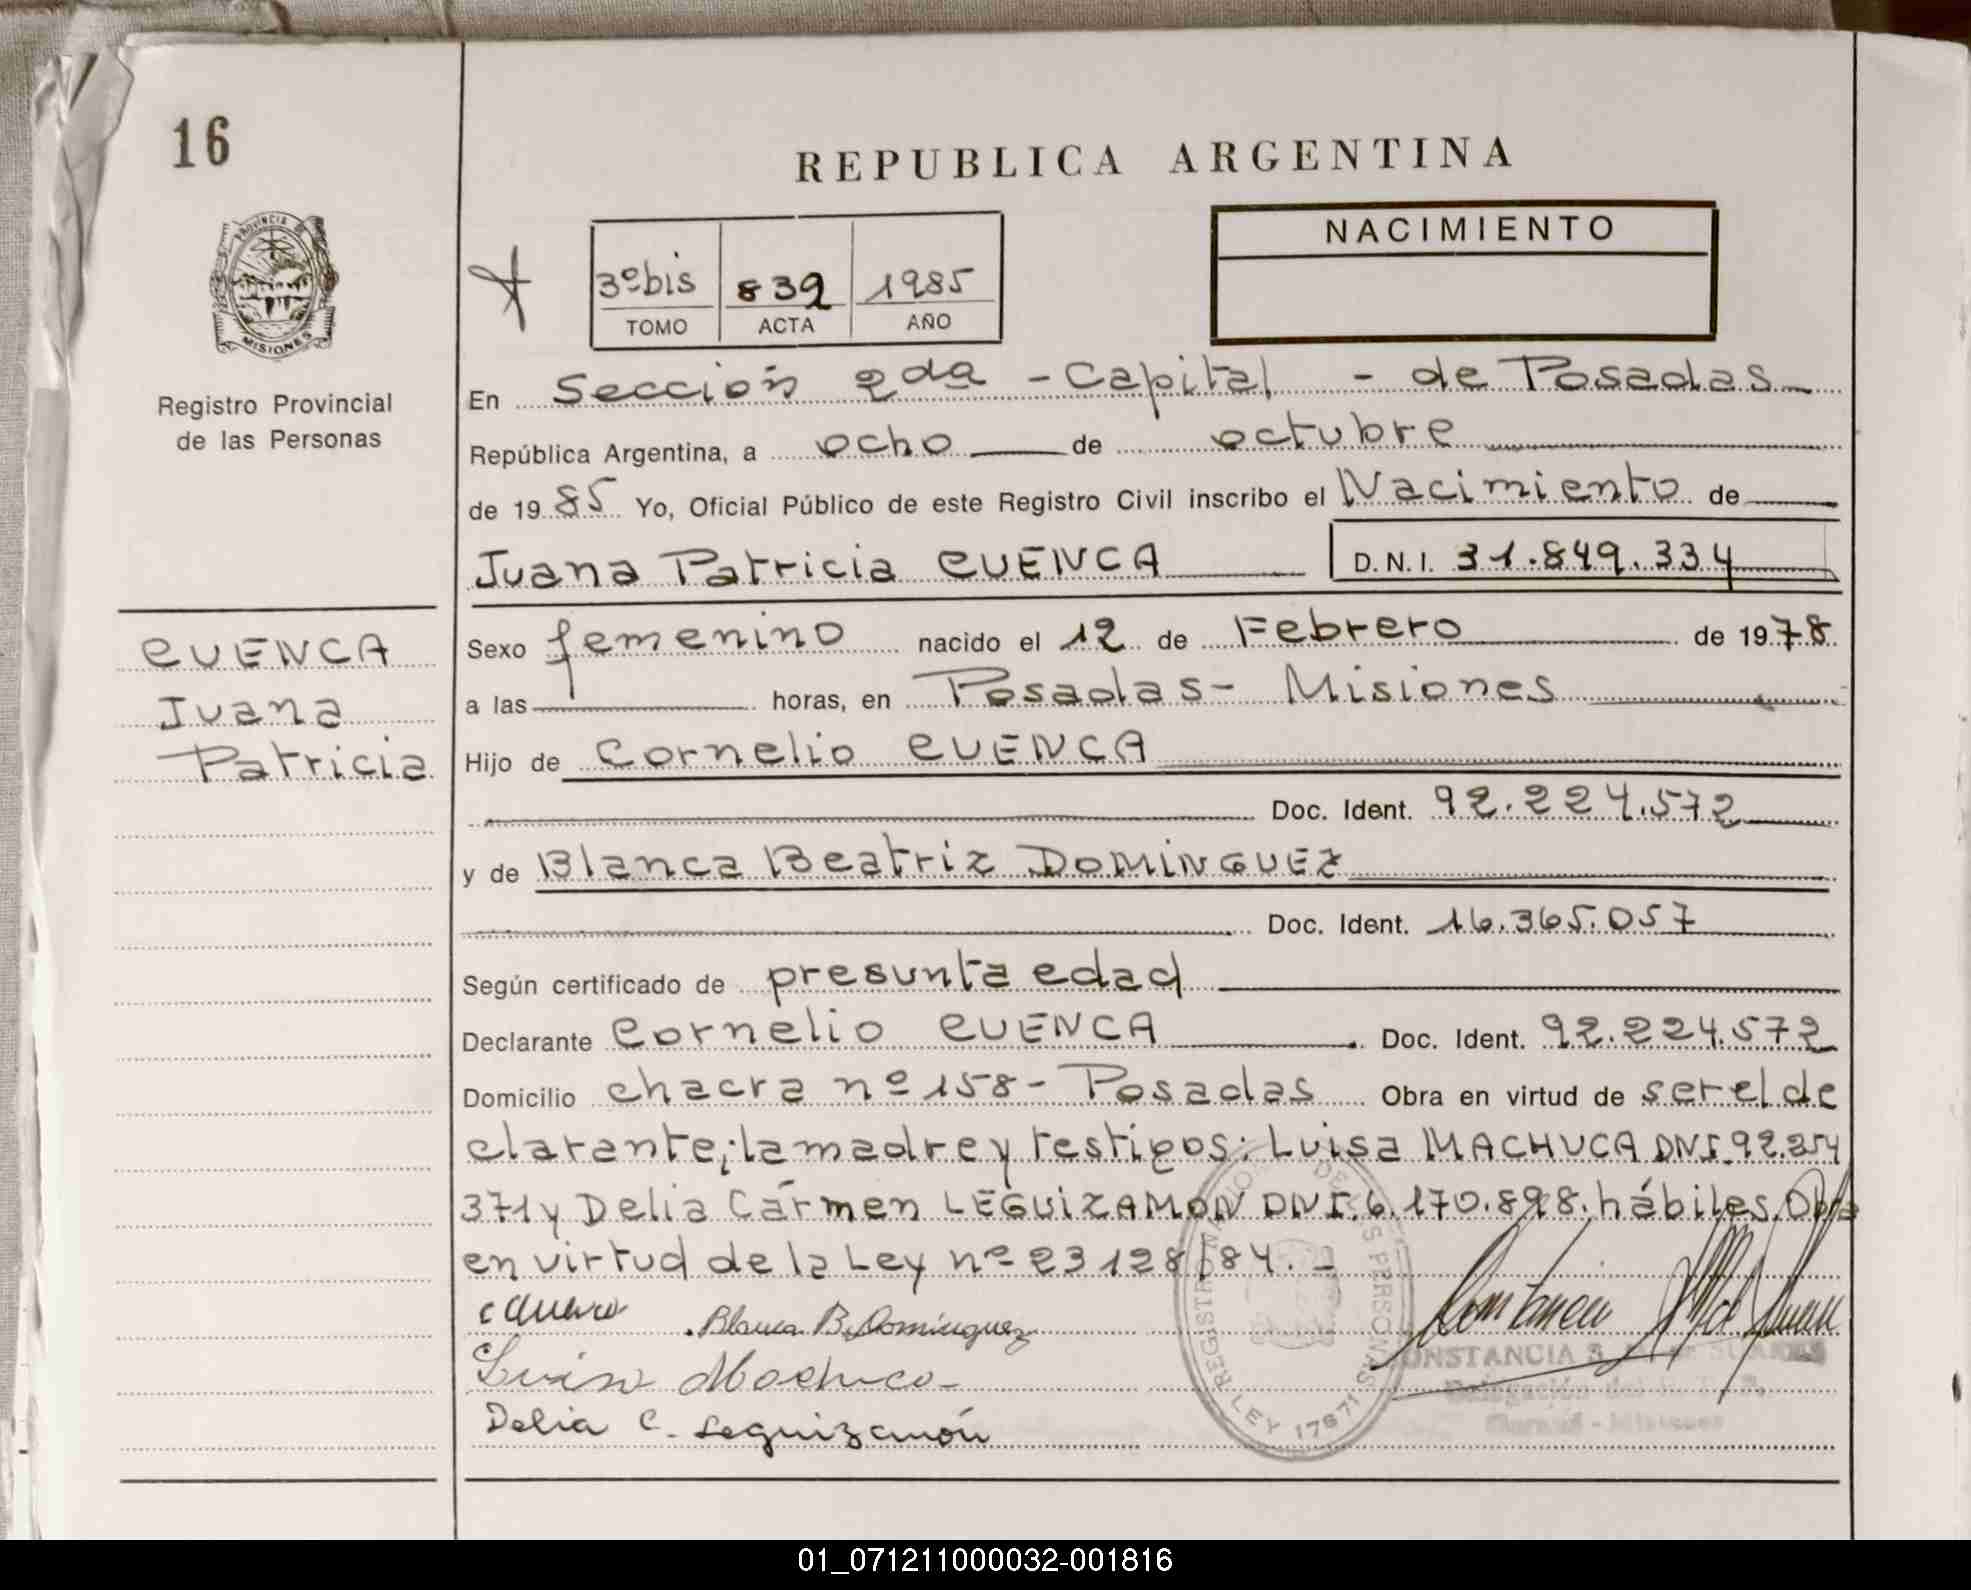 16
REPUBLICA ARGENTINA
PROVINCIA DE
MISIONES
Registro Provincial
de las Personas
3º bis 839 1985
TOMO ACTA AÑO
NACIMIENTO
En Sección 2da - Capital - de Posadas
República Argentina, a ocho de octubre
de 1985 Yo, Oficial Público de este Registro Civil inscribo el Nacimiento de
Juana Patricia CUENCA D.N.I. 31.849.334
CUENCA
Juana
Patricia
Sexo femenino nacido el 12 de Febrero de 1978
a las horas, en Posadas - Misiones
Hijo de Cornelio CUENCA
Doc. Ident. 92.224.572
y de Blanca Beatriz DOMINGUEZ
Doc. Ident. 16.365.057
Según certificado de presunta edad
Declarante Cornelio CUENCA Doc. Ident. 92.224.572
Domicilio chacra nº 158 - Posadas Obra en virtud de ser el de
clarante; la madre y testigos: Luisa MACHUCA DNI. 92.254
371 y Delia Cármen LEGUIZAMON DNI. 6.170.898. hábiles. Obra
en virtud de la Ley nº 23128/84. -
Blanca B. Dominguez
Luisa Machuca
Delia C. Leguizamón
REGISTRO NACIONAL DE LAS PERSONAS
LEY 17671
CONSTANCIA S.
01_071211000032-001816